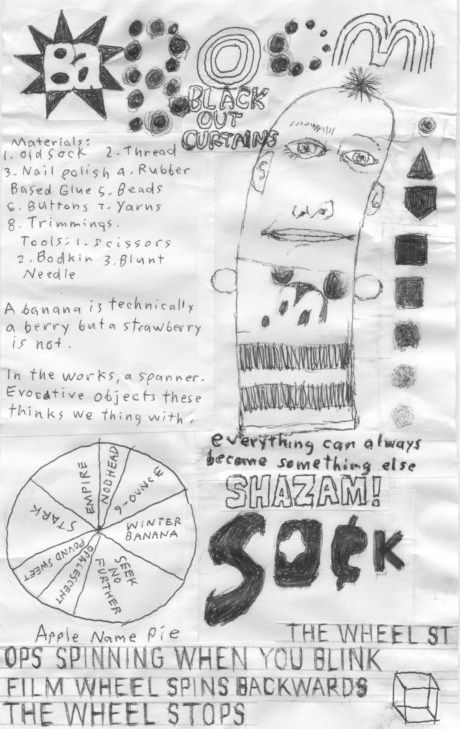 Ba BOOM
BLACK
OUT
CURTAINS
Materials:
1. Old Sock 2. Thread
3. Nail polish 4. Rubber
Based Glue 5. Beads
6. Buttons 7. Yarns
8. Trimmings.
Tools: 1. Scissors
2. Bodkin 3. Blunt
Needle
A banana is technically
a berry but a strawberry
is not.
In the works, a spanner.
Evocative objects these
thinks we thing with.
everything can always
become something else
SHAZAM!
SOCK
EMPIRE
NODHEAD
6-OUNCE
WINTER
BANANA
SEEK
NO
FURTHER
OPALESCENT
POUND SWEET
STARK
Apple Name Pie
THE WHEEL ST
OPS SPINNING WHEN YOU BLINK
FILM WHEEL SPINS BACKWARDS
THE WHEEL STOPS